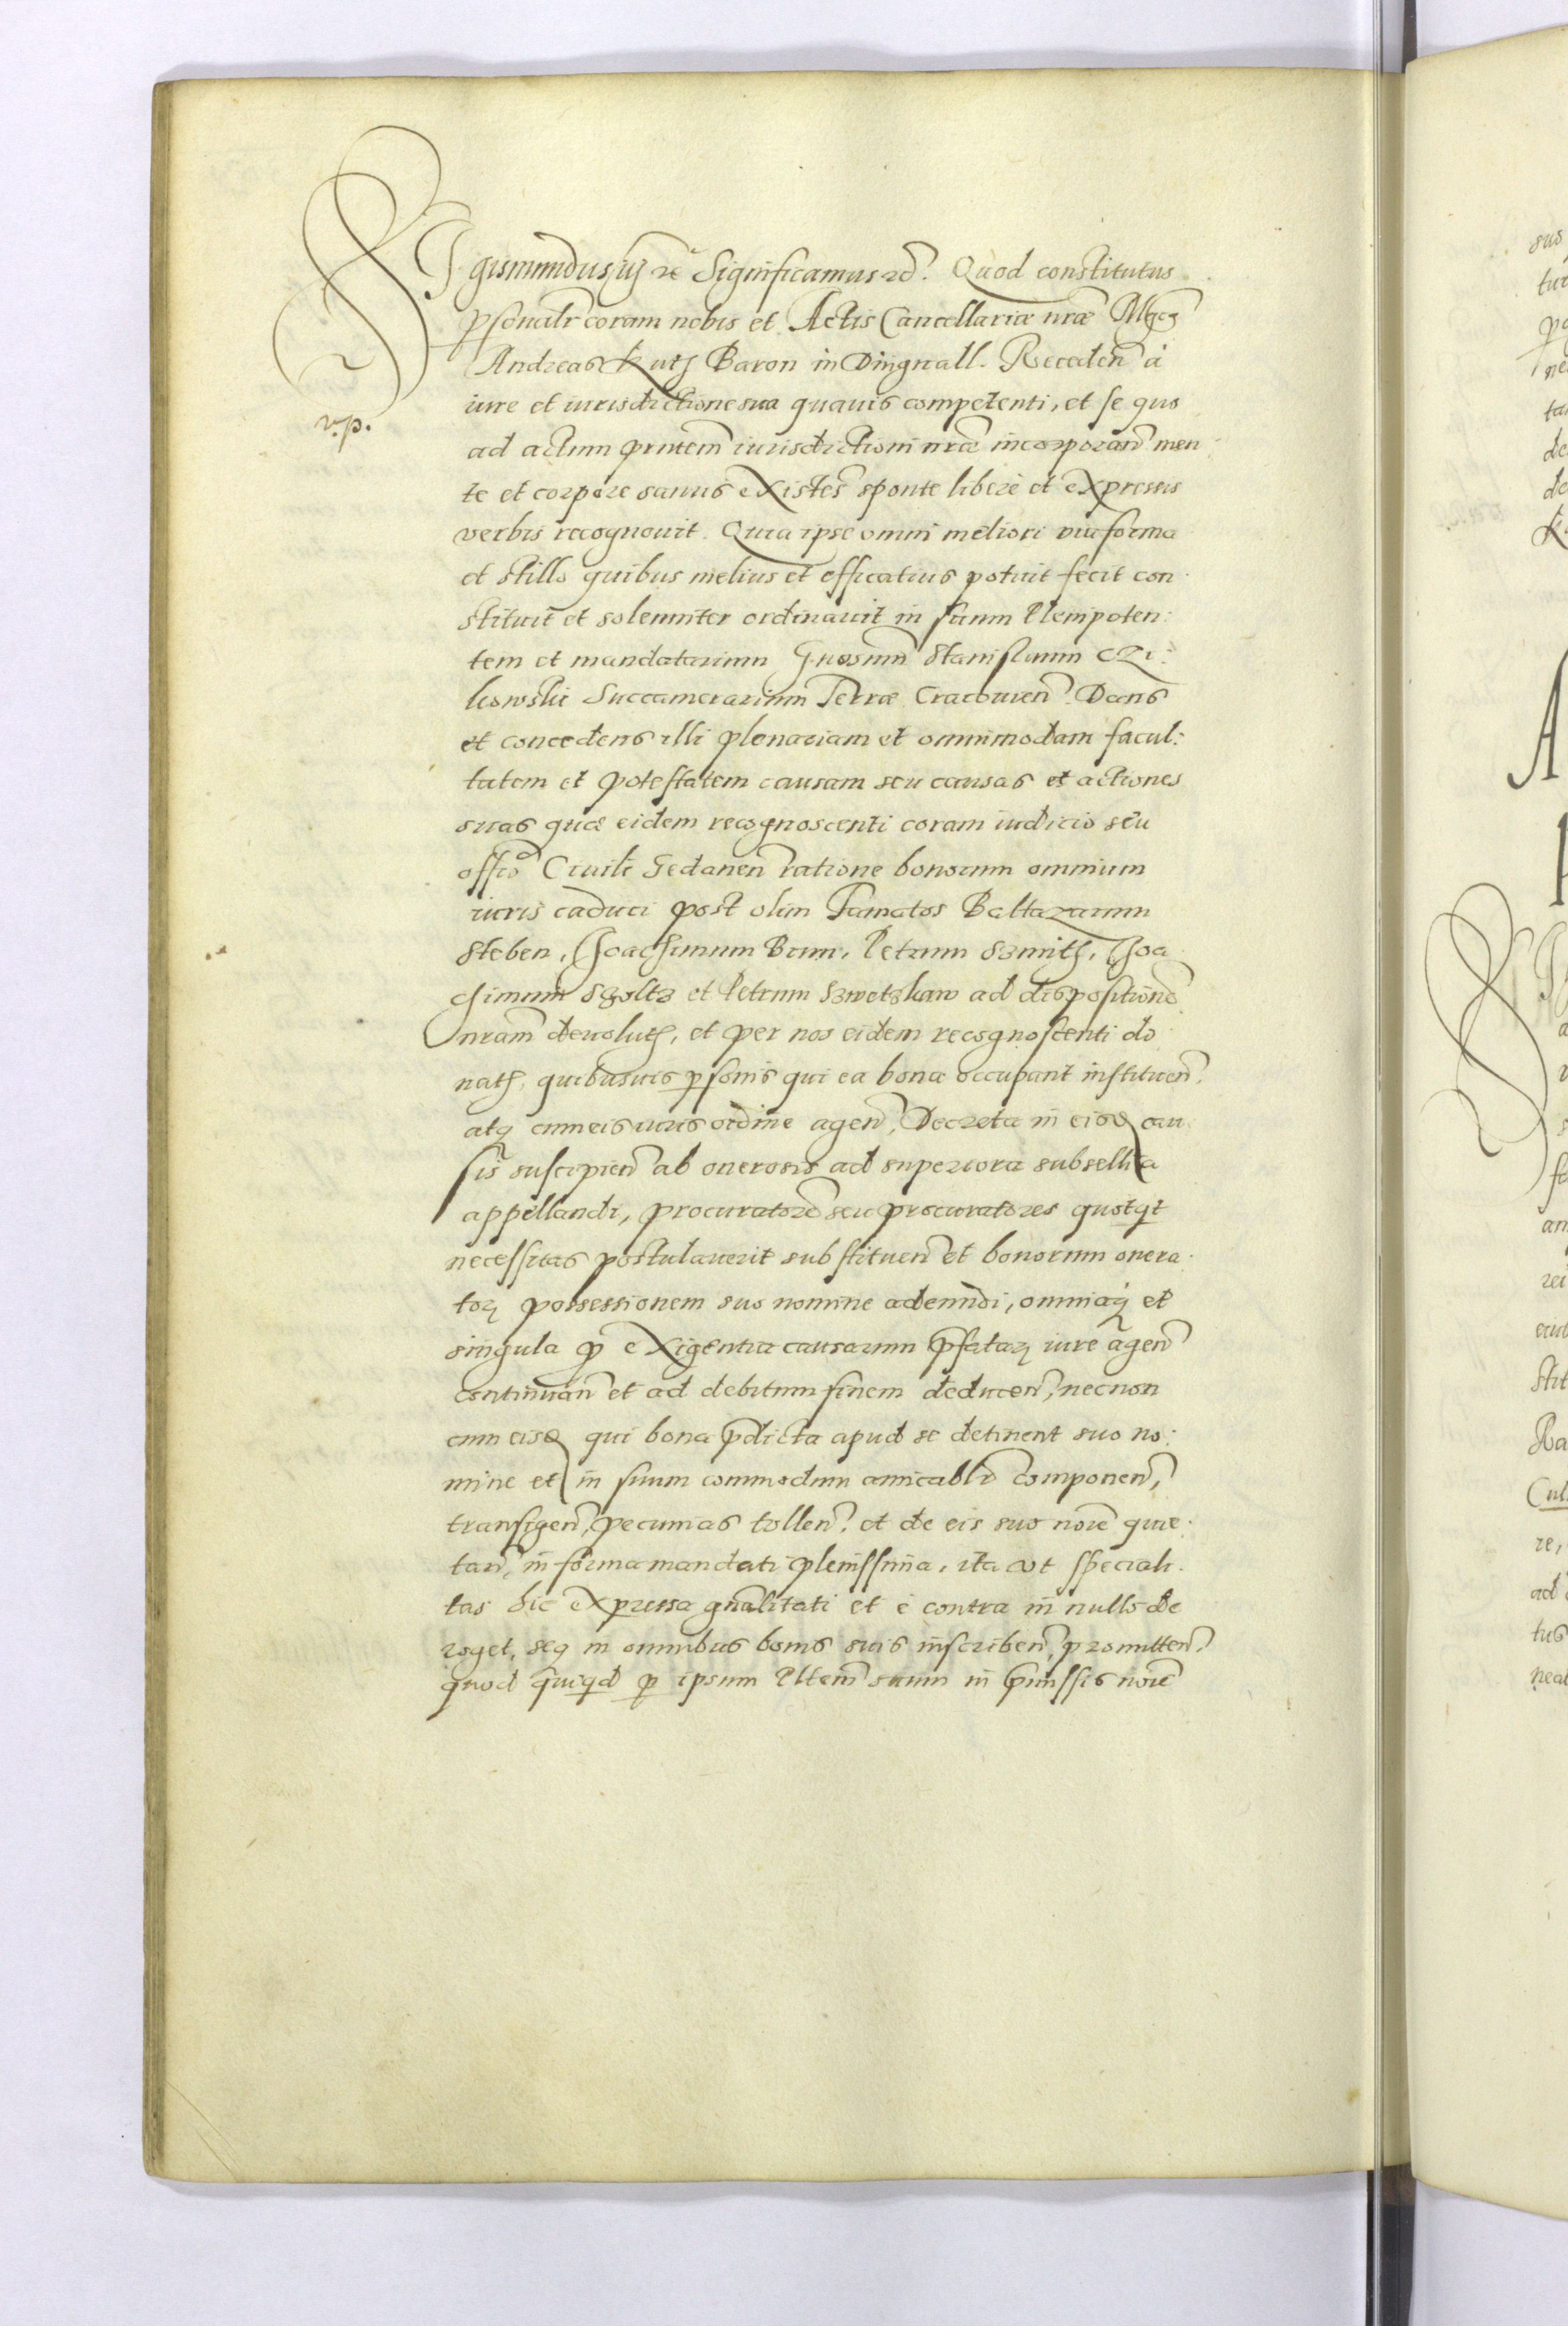 Sigismundus iij etc Significamus etc. Quod constitutus
psonalr coram nobis et Actis Cancellariæ nræ Mgcs
Andreas Kuth Baron in Dingnall. Receden à
iure et iurisdictione sua quavis competenti, et se quo
v.p.
ad actum pntem iurisdictioni nræ incorporan men
te et corpore sanus existes sponte liberè et expressis
verbis recognouit. Quia ipse omni meliori via forma
et stillo quibus melius et efficatius potuit fecit con
stituit et solemniter ordinauit in suum Plenipoten:
tem et mandatarium Gnosum Stanislaum CZi:
kowski Succamerarium Terræ Cracouien. Dans
et concedens illi plenariam et omnimodam facul:
tatem et potestatem causam seu causas et actiones
suas quæ eidem recognoscenti coram iudicio seu
offio Ciuili Gedanen ratione bonorum omnium
iuris caduci post olim Famatos Baltazarum
Steben, Joachimum Bum, Petrum Szmith, Joa
chimum Scholtz et Petrum Szwetzkaw ad dispositione
nram deuoluth, et per nos eidem recognoscenti do
nath, quibusuis psonis qui ea bona occupant instituen.
atq cum eis iuris ordine agen, Decreta in eisd cau
sis suscipien ab onerosis ad superiora subsellia
appellandi, procuratore seu procuratores quotqt
necessitas postulauerit substituen et bonorum onera
tor possessionem suo nomine adeundi, omniaq et
singula p exigentia causarum pfatar iure agen
continuan et ad debitum finem deducen, necnon
cum eisd qui bona pdicta apud se detinent suo no:
mine et in suum commodum amicablr componen,
transigen, pecunias tollen. et de eis suo noie quie
tan, in forma mandati plenissima, ita vt speciali
tas hic expressa gnalitati et è contra in nullo de
roget, seq in omnibus bonis suis inscriben, promitten,
quod quiqd p ipsum Pltem suum in pmissis noie